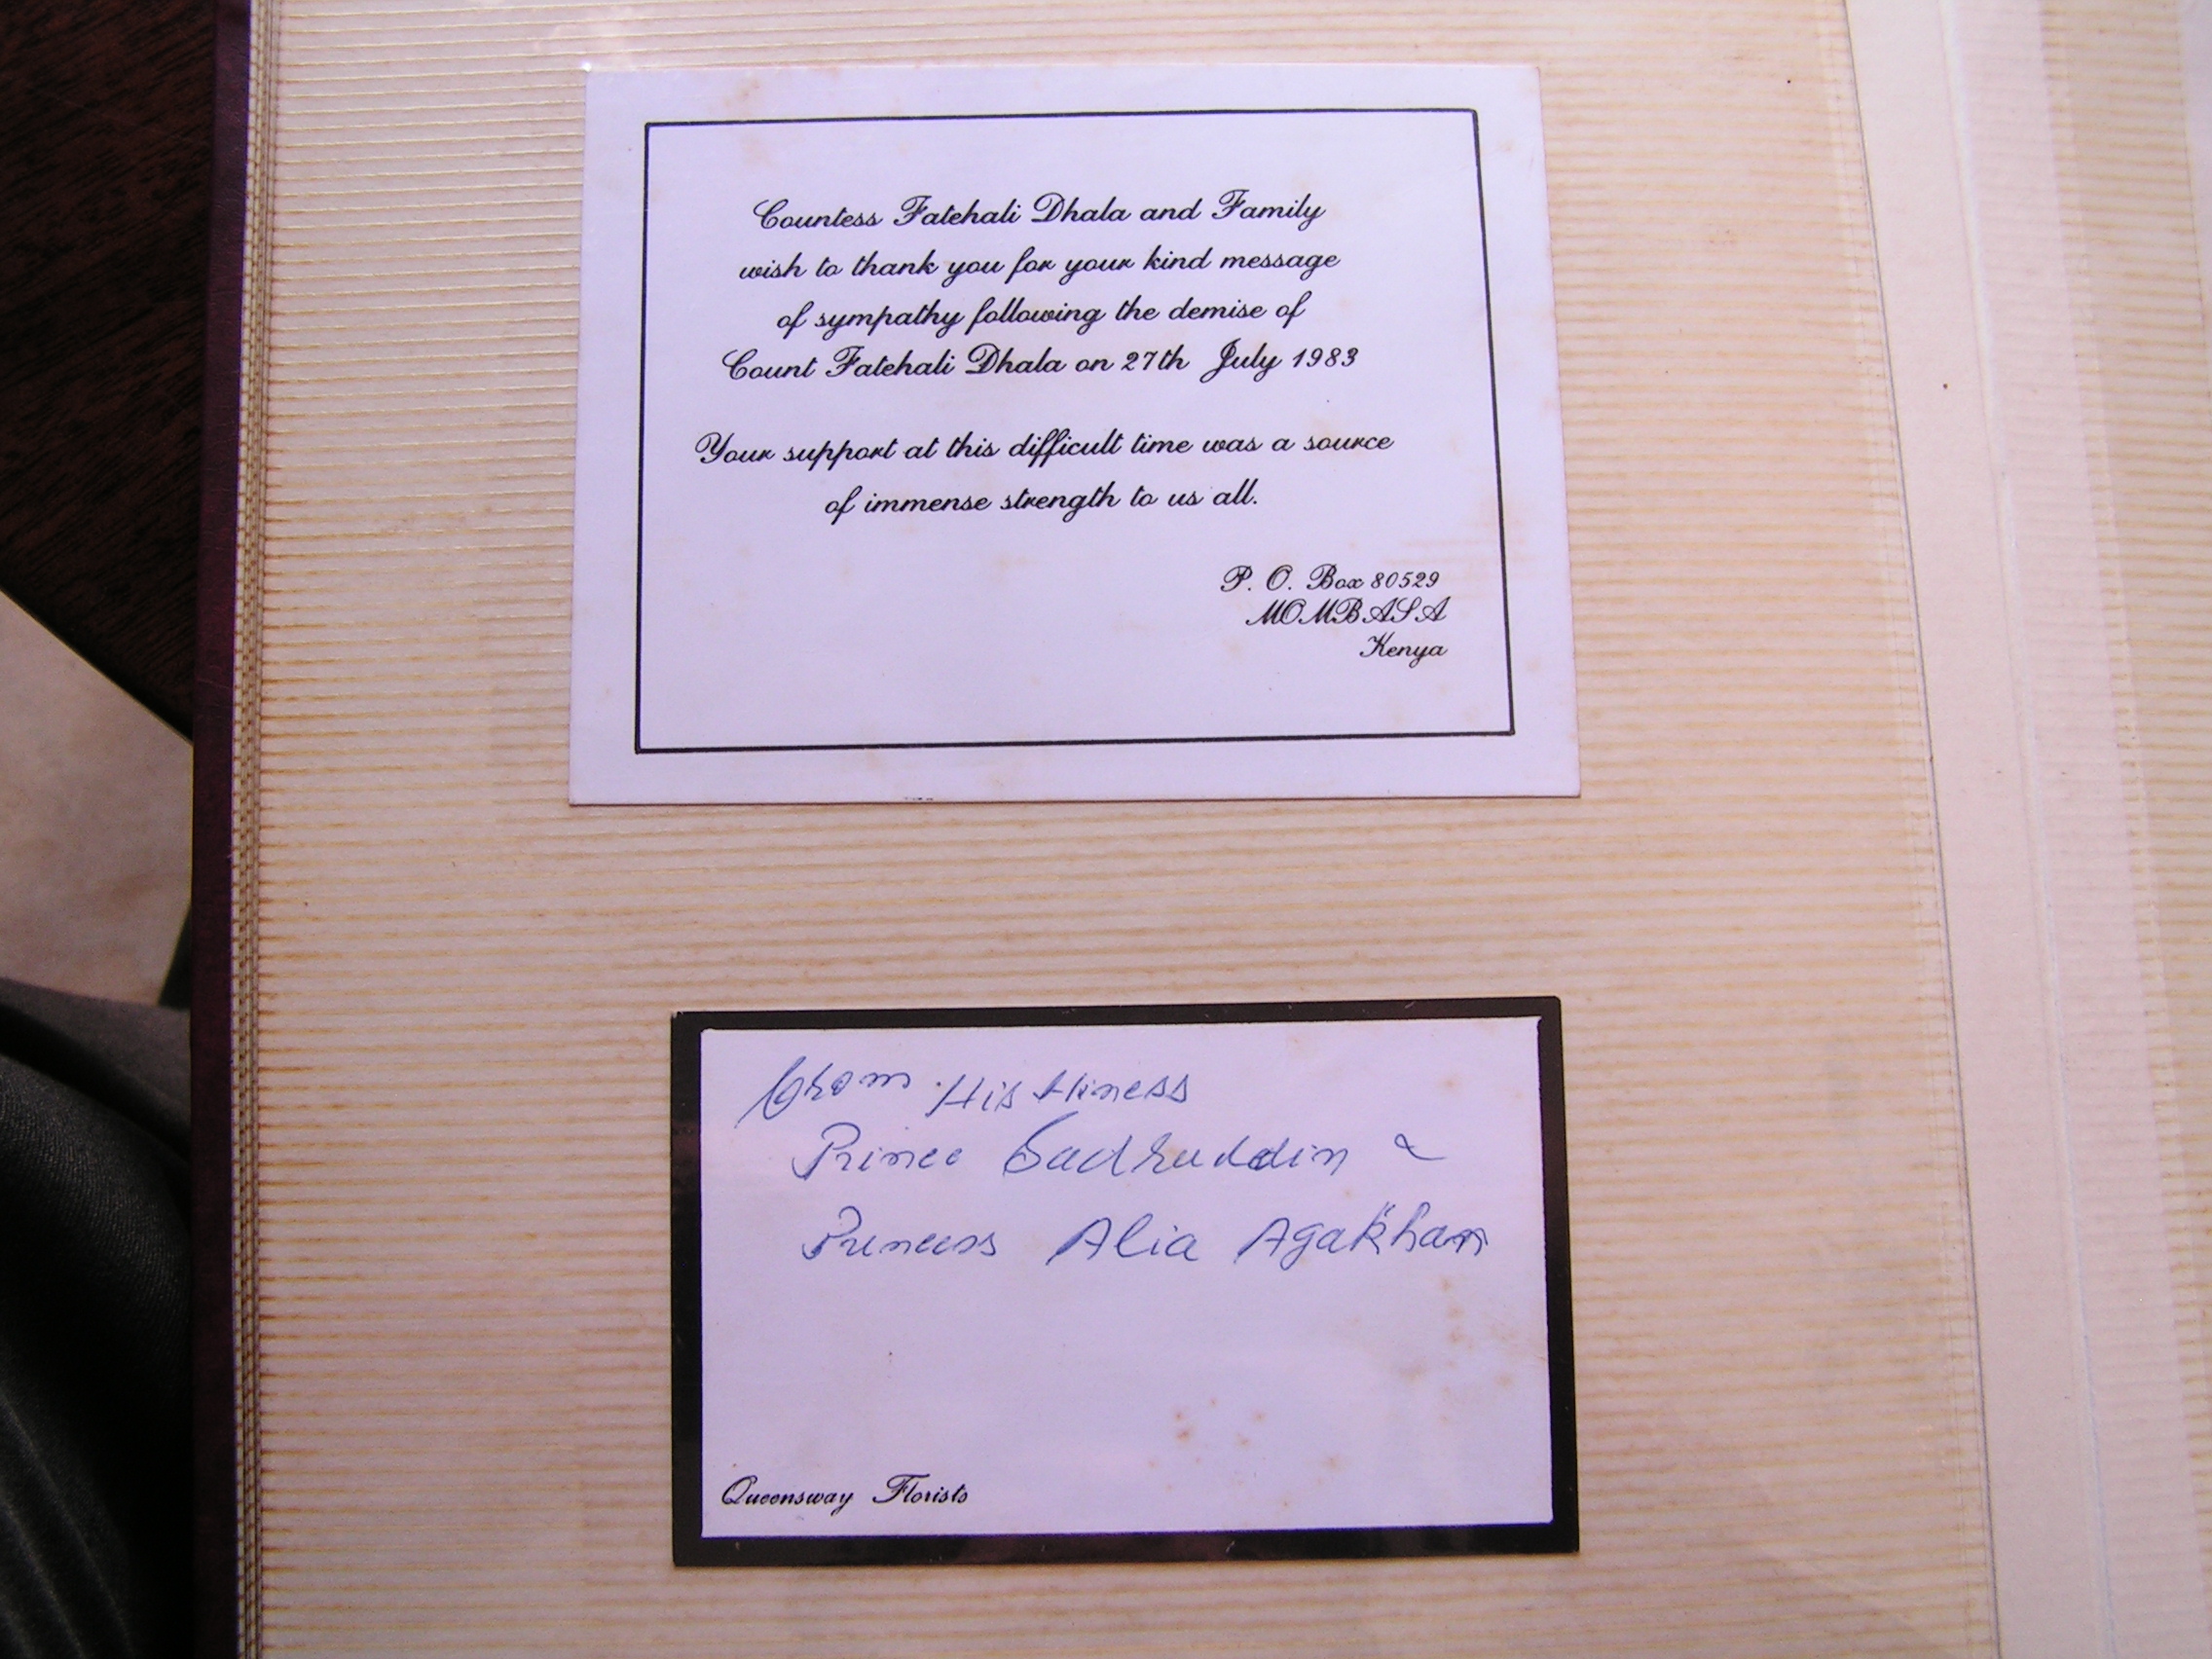 Countess Fatehali Dhala and Family
wish to thank you for your kind message
of sympathy following the demise of
Count Fatehali Dhala on 27th July 1983
Your support at this difficult time was a source
of immense strength to us all.
P. O. Box 80529
MOMBASA
Kenya
From His Hiness
Prince Sadruddin &
Princess Alia Agakhan
Queensway Florists